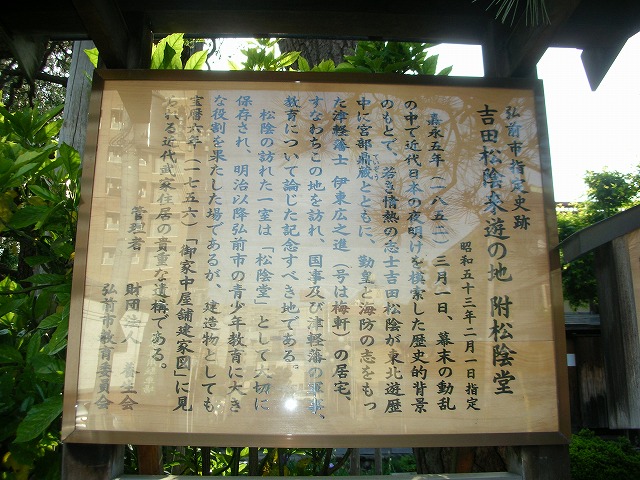 弘前市指定史跡
吉田松陰來遊の地 附松陰堂
昭和五十三年二月一日指定
嘉永五年(一八五二)三月一日、幕末の動乱
の中で近代日本の夜明けを模索した歴史的背景
のもとで、若き情熱の志士吉田松陰が東北遊歴
中に宮部鼎蔵とともに、勤皇と海防の志をもっ
た津軽藩士 伊東広之進(号は梅軒)の居宅、
すなわちこの地を訪れ、国事及び津軽藩の軍事、
教育について論じた記念すべき地である。
松陰の訪れた一室は「松陰堂」として大切に
保存され、明治以降弘前市の青少年教育に大き
な役割を果たした場であるが、建造物としても
宝暦六年(一七五六)「御家中屋舗建家図」に見
られる近代武家住居の貴重な遺構である。
管理者 財団法人 養生会
弘前市教育委員会